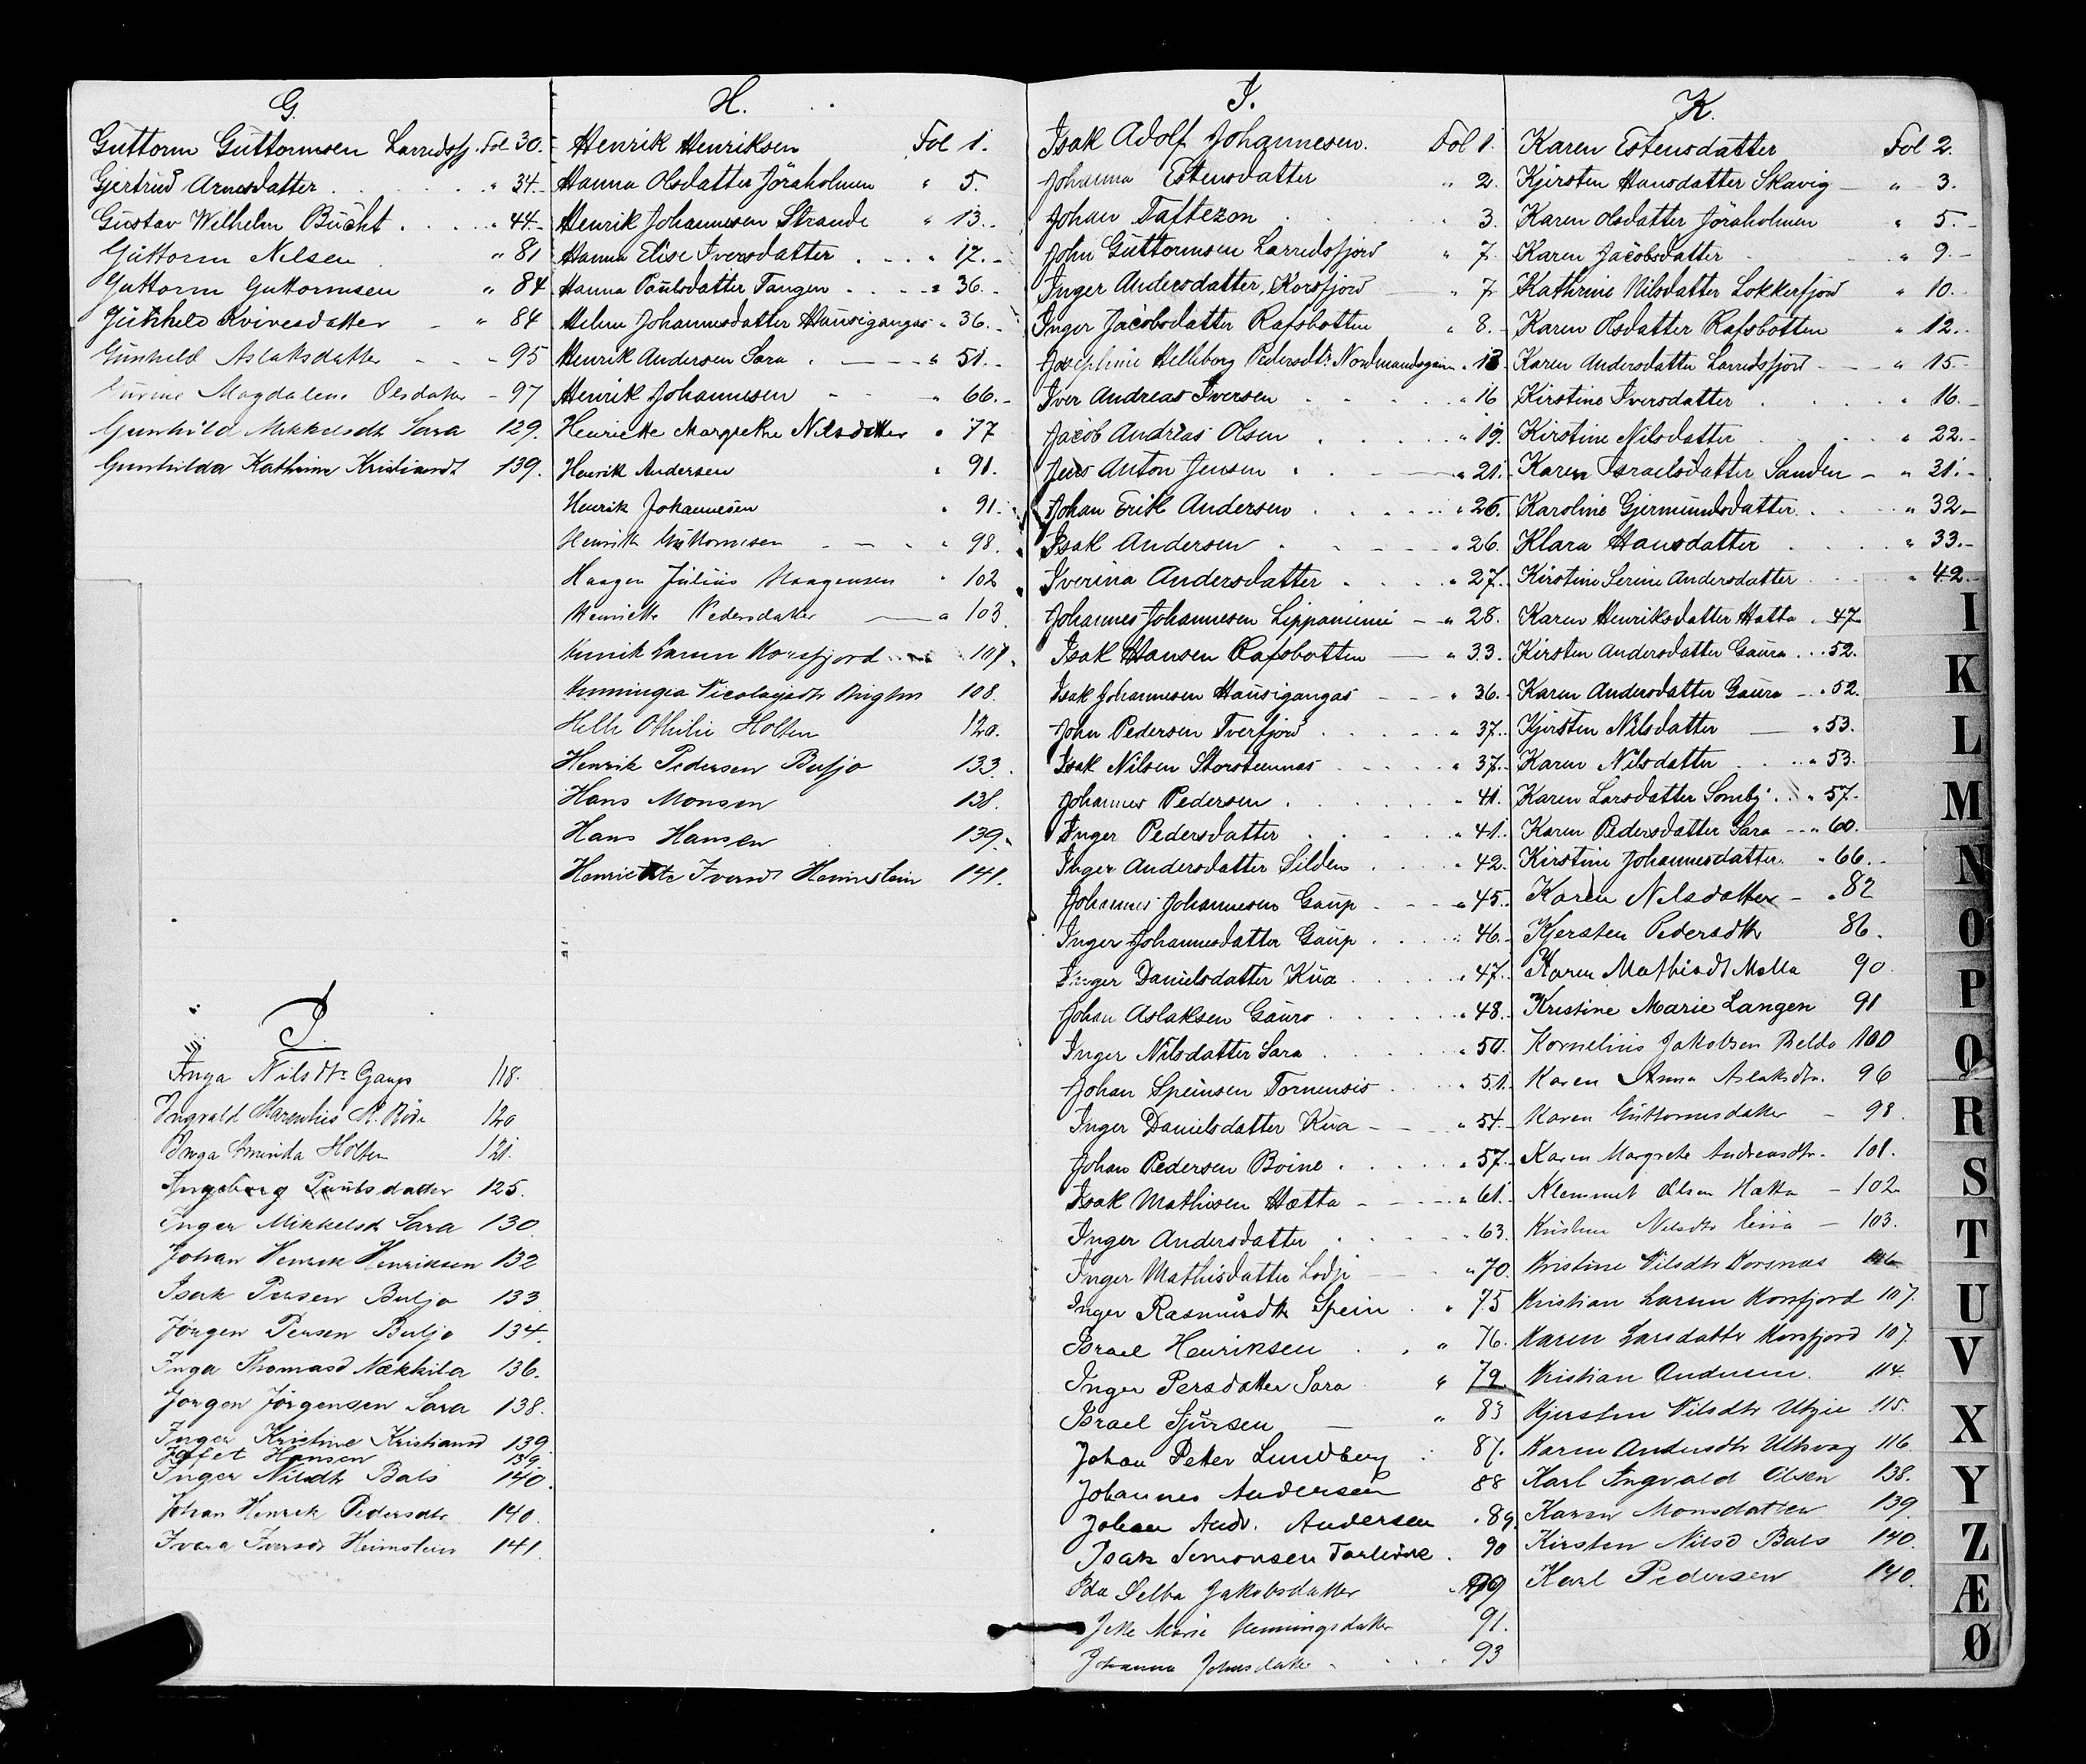 G.
Guttorm Guttormsen Larredsfj. Fol 30.
Gjertrud Arnesdatter " 34.
Gustav Wilhelm Bucht " 44.
Guttorm Nilsen " 81
Guttorm Guttormsen " 84
Gunhild Kvivesdatter " 84
Gunhild Aslaksdatter 95
Magdalene Olsdatter 97
Gunhild Mikkelsdtr Sara 129.
Gunhilda Kathrine Kristiansdt 139.
I.
Inga Nilsdtr Gaup 118.
Ingvald 120
Inga Holten 121.
Ingeborg Paulsdatter 125.
Inger Mikkelsd Sara 130.
Johan Henrik Henriksen 132
Isak Persen Buljo 133
Jörgen Persen Buljo 134.
Inga Thomasd Nækkila 136.
Jörgen Jörgensen Sara 138.
Inger Kristine Kristiansd 139.
Jafet Hansen 139.
Inger Nilsdtr Bals 140.
Johan Henrik Pedersdtr 140.
Ivara Iversdr Heimstein 141.
H.
Henrik Henriksen Fol 1.
Hanna Olsdatter Jöraholmen " 5.
Henrik Johannesen Strande " 13.
Hanna Elise Iversdatter " 17.
Hanna Paulsdatter Tangen " 36.
Helene Johannesdatter Hausigangas " 36.
Henrik Andersen Sara " 51.
Henrik Johannesen " 66.
Henriette Margrethe Nilsdatter " 77
Henrik Andersen " 91.
Henrik Johannesen " 91.
Henrik Guttormsen " 98.
Haagen Julius Haagensen " 102
Henriette Pedersdatter " 103
Henrik Larsen Korsfjord 107.
Henningea Nicolaijsdtr 108.
Helle Othilie Holten 120.
Henrik Pedersen Buljo 133.
Hans Monsen 138.
Hans Hansen 139.
Henriette Iversd Heimstein 141.
I.
Isak Adolf Johannesen. Fol 1.
Johanna Estensdatter " 2.
Johan Taftezon " 3.
John Guttormsen Larredsfjord " 7
Inger Andersdatter, Korsfjord " 7
Inger Jacobsdatter Rafsbotten " 8.
Josephine Helleborg Pedersdtr. " 13
Iver Andreas Iversen " 16
Jacob Andreas Olsen " 19.
Jens Anton Jensen " 21.
Johan Erik Andersen " 26.
Isak Andersen " 26.
Iverina Andersdatter " 27.
Johannes Johannesen Lippaniemi " 28.
Isak Hansen Rafsbotten " 33.
Isak Johannesen Hausigangas " 36.
John Pedersen Tverfjord " 37.
Isak Nilsen Storsteennes " 37.
Johannes Pedersen " 41.
Inger Pedersdatter " 41.
Inger Andersdatter Silden " 42.
Johannes Johannesen Gaup " 45.
Inger Johannesdatter Gaup " 46.
Inger Danielsdatter Kua " 47.
Johan Aslaksen Gauro " 48.
Inger Nilsdatter Sara " 50.
Johan Speinsen Tornensis " 51.
Inger Danielsdatter Kua " 54.
Johan Pedersen Boine " 57.
Isak Mathisen Hætta " 61.
Inger Andersdatter " 63.
Inger Mathisdatter Lodje " 70.
Inger Rasmusdtr Spein " 75
Israel Henriksen " 76.
Inger Persdatter Sara " 79.
Israel Sjursen " 83
Johan Petter Lundberg 87.
Johannes Andersen 88
Johan Andr. Andersen " 89.
Isak Simonsen 90
Ida Selba Jakobsdatter
Jelle Marie Henningsdatter 91.
Johanna Johnsdatter 93
K.
Karen Estensdatter Fol 2.
Kjersten Hansdatter Skavig " 3.
Karen Olsdatter Jöraholmen " 5.
Karen Jacobsdatter " 9.
Kathrine Nilsdatter Lokkerfjord " 10.
Karen Olsdatter Rafsbotten " 12.
Karen Andersdatter Larredsfjord " 15.
Kirstine Iversdatter " 16.
Kirstine Nilsdatter " 22.
Karen Israelsdatter Sanden " 31.
Karoline Gjermundsdatter " 32.
Klara Hansdatter " 33.
Kirstine Serine Andersdatter " 42.
Karen Henriksdatter Hatta " 47
Kirsten Andersdatter Gaura " 52.
Karen Andersdatter Gaura " 52.
Kjersten Nilsdatter " 53.
Karen Nilsdatter " 53.
Karen Larsdatter Somby " 57.
Karen Pedersdatter Sara " 60.
Kirstine Johannesdatter. " 66.
Karen Nilsdatter " 82
Kjersten Pedersdtr 86.
Karen Mathisdt Malla 90.
Kristine Marie Langen 91
Kornelius Jakobsen Beldo 100
Karen Anna Aslaksdtr. 96
Karen Guttormsdatter 98.
Karen Margrete Andreasdtr. 101.
Klemmet Olsen Hætta 102
Kristine Nilsdtr Eira 103.
Kristine Nilsdtr Korsnæs 106
Kristian Larsen Korsfjord 107.
Karen Larsdatter Korsfjord 107.
Kristian Andersen. 114.
Kjersten Nilsdtr Utsjie 115.
Karen Andersdtr Ulsvag 116
Karl Ingvald Olsen 138.
Karen Monsdatter 139.
Kirsten Nilsd Bals 140.
Karl Pedersen 140.
I
K
L
M
N
O
P
Q
R
S
T
U
V
X
Y
Z
Æ
Ø